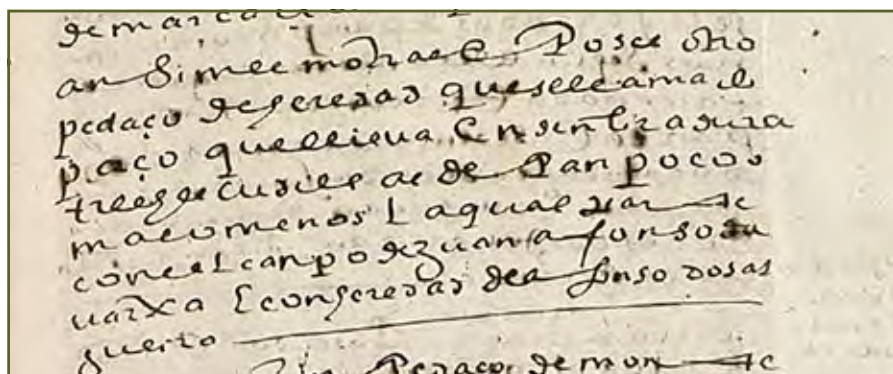 de marca
an si mes mo trae E Posee otro
pedaço de heredad que se llama el
paço que llieua En senbradura
tres ferrados de Pan poco o
mas o menos Laqual parte
con el canpo de zuan afonso da
uarxa E con heredad de afonso dosas
guerto
Pedaço de monte